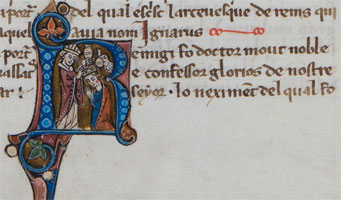 port. del qual es sc̄ larceuesque de rems qui
aquel auia nom Ignarus
port Remigi fo doctor mout noble
e confessor glorios de nostre
ar seyor. Lo neximēt del qual fo